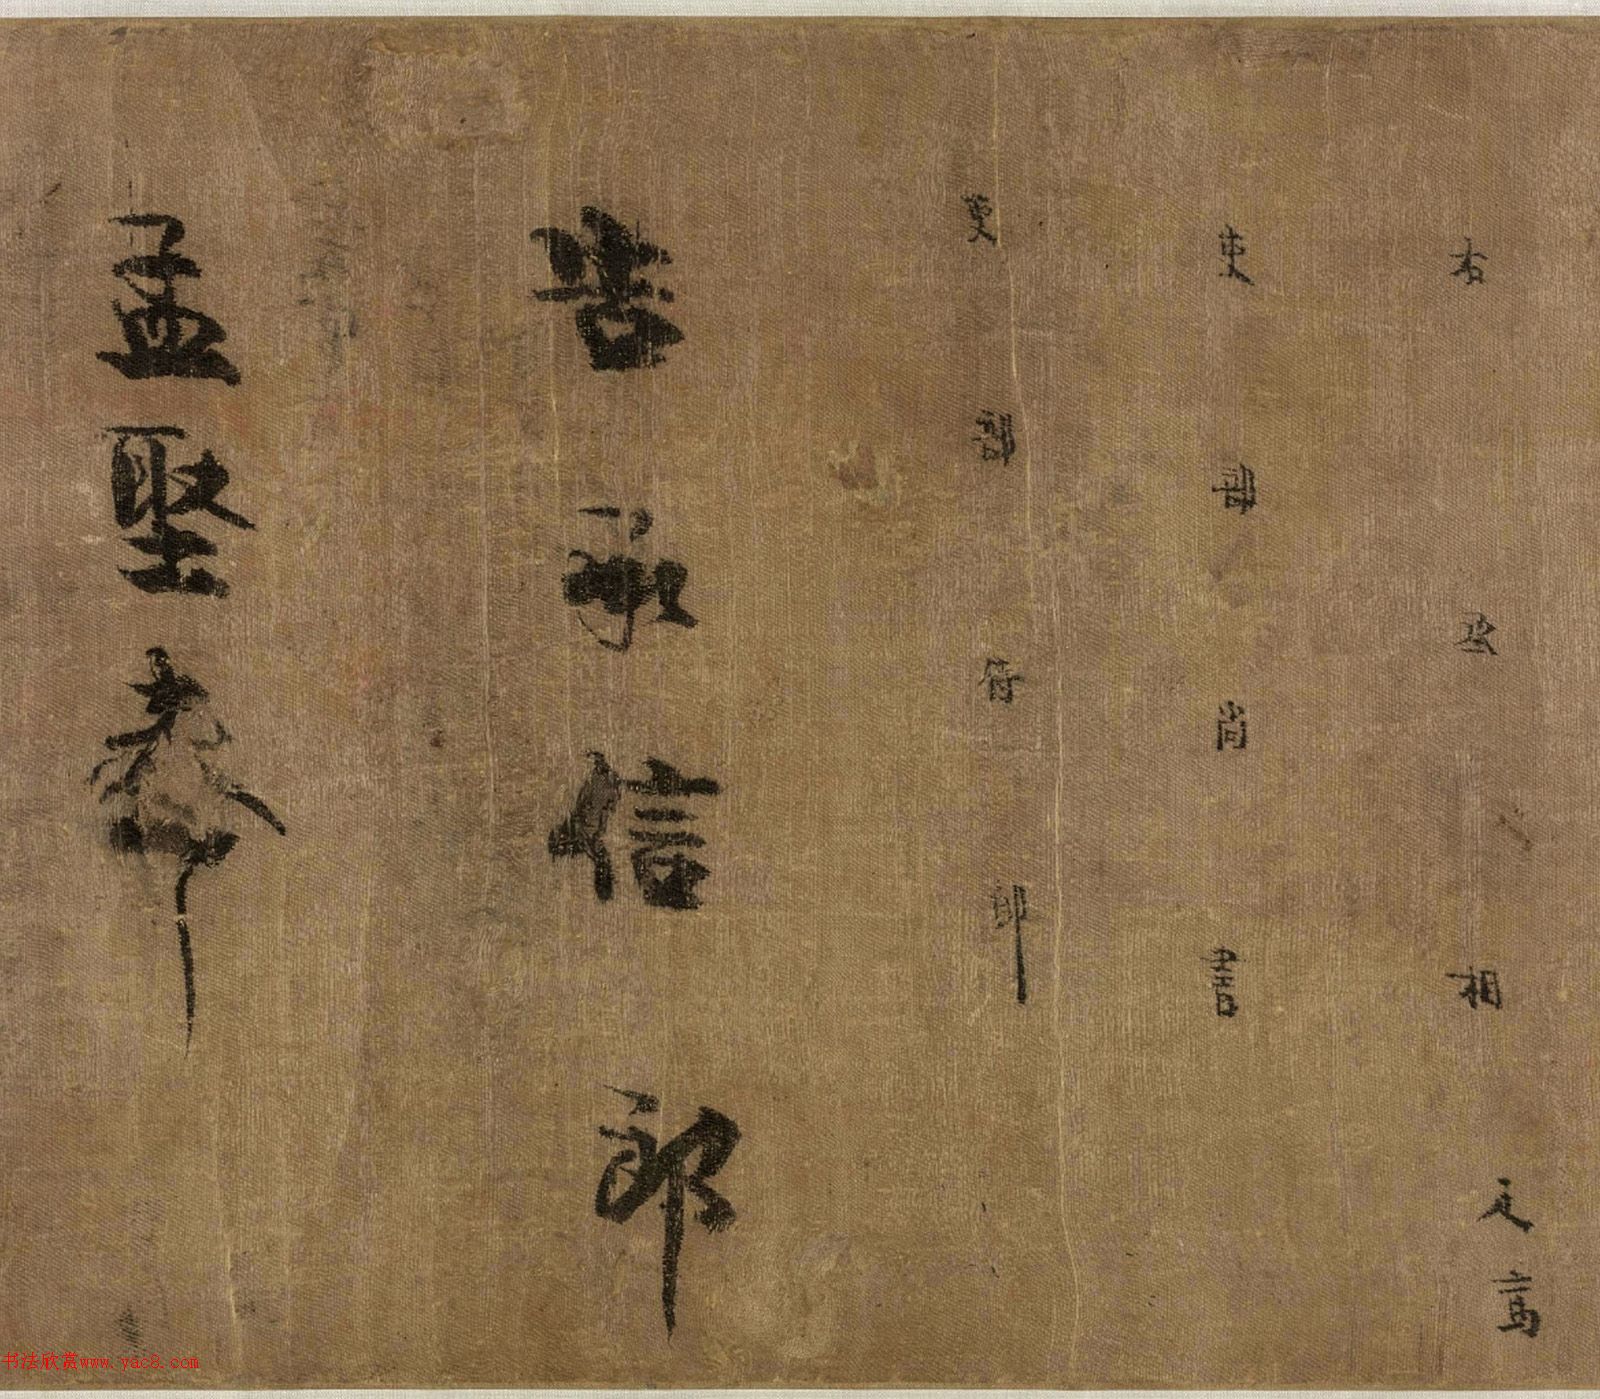 右丞相
吏部尚書
吏部侍郎
告承信郎
孟堅奉
书法欣赏www.yac8.com